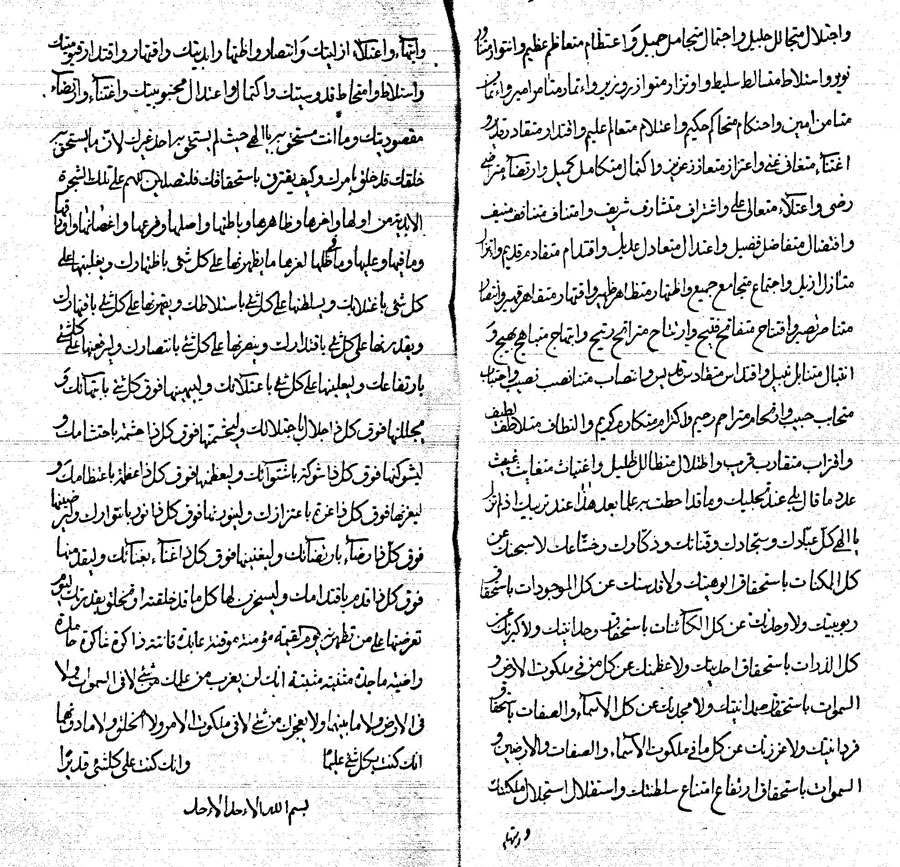 واجتلال متجالل جليل واحتمال متجامل جميل واعتظام متعاظم عظيم وانتوار متناور
نوير واستلاط متسالط سليط واوتزار متوازر وزير وائتمار متامر امير وائتمان
متامن امين واحتكام متحاكم حكيم واعتلام متعالم عليم واقتدار متقادر قدير و
اغتناء متغانى غنى واعتزاز متعازز عزيز واكتمال متكامل كميل وارتضاء متراضى
رضى واعتلاء متعالى على واشتراف متشارف شريف وامتناف متنانف منيف
وافتضال متفاضل فضيل واعتدال متعادل عديل واقتدام متقادم قديم وانتزال
واجتماع متجامع جميع واظتهار متظاهر ظهير واقتهار متقاهر قهير وانتصار
متناصر نصير وافتتاح متفاتح فتيح وارتباح مترابح ربيح وابتهاج متباهج بهيج و
انتبال متنابل نبيل واقتداس متقادس قديس وانتصاب متناصب نصيب واحتباب
متحابب حبيب وارتحام متراحم رحيم واكترام متكارم كريم والتطاف متلاطف لطيف
واقتراب متقارب قريب واظتلال متظالل ظليل واغتياث متغايث غييث
عدد ما قال بلى عند تجليك وما قد احطت به علما بعد هذا عند تربيك اذ لم تزل
يا الهى كل عبادك وسجادك وقناتك وذكارك وخشاعك لاسبحنك عن
كل الممكنات باستحقاق الوهيتك ولاقدسنك عن كل الموجودات باستحقاق
ربوبيتك ولاوحدنك عن كل الكائنات باستحقاق وحدانيتك ولاكبرنك عن
كل الذرات باستحقاق احديتك ولاعظمنك عن كل من فى ملكوت الارض و
السموات باستحقاق صمدانيتك ولامجدنك عن كل الاسماء والصفات باستحقاق
فردانيتك ولاعززنك عن كل ما فى ملكوت الاسماء والصفات والارضين و
السموات باستحقاق ارتفاع امتناع سلطنتك واستقلال استجلال مليكتك
وابتهاء واعتلاء ازليتك وانتصار واظتهار ابديتك واقتهار واقتدار قيوميتك
واستلاط وامتحاط قدوسيتك واكتمال واعتدال محبوبيتك واغتناء وارتضاء
مقصوديتك وما انت مستحق به يا الهى حيث لم يستحق به احد غيرك لان ما يستحق به
خلقك قد خلق بامرك وكيف يقترن باستحقاقك فلتصلين اللهم على تلك الشجرة
الالهية من اولها واخرها وظاهرها وباطنها واصلها وفرعها واغصانها واوراقها
وما فيها وعليها وما قدر لها لعزها ما يظهرنها على كل شئ باظتهارك ويغلبنها على
كل شئ باغتلابك ويسلطنها على كل شئ باستلاطك ويقهرنها على كل شئ باقتهارك
ويقدرنها على كل شئ باقتدارك وينصرنها على كل شئ بانتصارك وليرفعنها على كل شئ
بارتفاعك وليعلينها على كل شئ باعتلائك وليبهينها فوق كل شئ بابتهائك و
يجللنها فوق كل ذا جلال باجتلالك وليحشمنها فوق كل ذا حشمة باحتشامك و
ليشوكنها فوق كل ذا شوكة باشتواكك وليعظمنها فوق كل ذا عظمة باعتظامك و
ليعززنها فوق كل ذا عزة باعتزازك ولينورنها فوق كل ذا نور بانتوارك وليرضينها
فوق كل ذا رضاء بارتضائك وليغنينها فوق كل ذا غناء بغنائك وليقدمنها
فوق كل ذا قدم باقتدامك وليسخرن لها كل ما قد خلقته او تخلق بقدرتك
تعرضنها على من تظهرنه يوم القيمة مؤمنة موقنة عابدة قانتة ذاكرة شاكرة حامدة
راضية ماجدة مثنية منيبة انك لن يعزب من علمك من شئ لا فى السموات ولا
فى الارض ولا ما بينهما ولا يعجزك من شئ لا فى ملكوت الامر والخلق ولا ما دونهما
انك كنت بكل شئ عليما وانك كنت على كل شئ قديرا
بسم الله الاوحد الاوحد